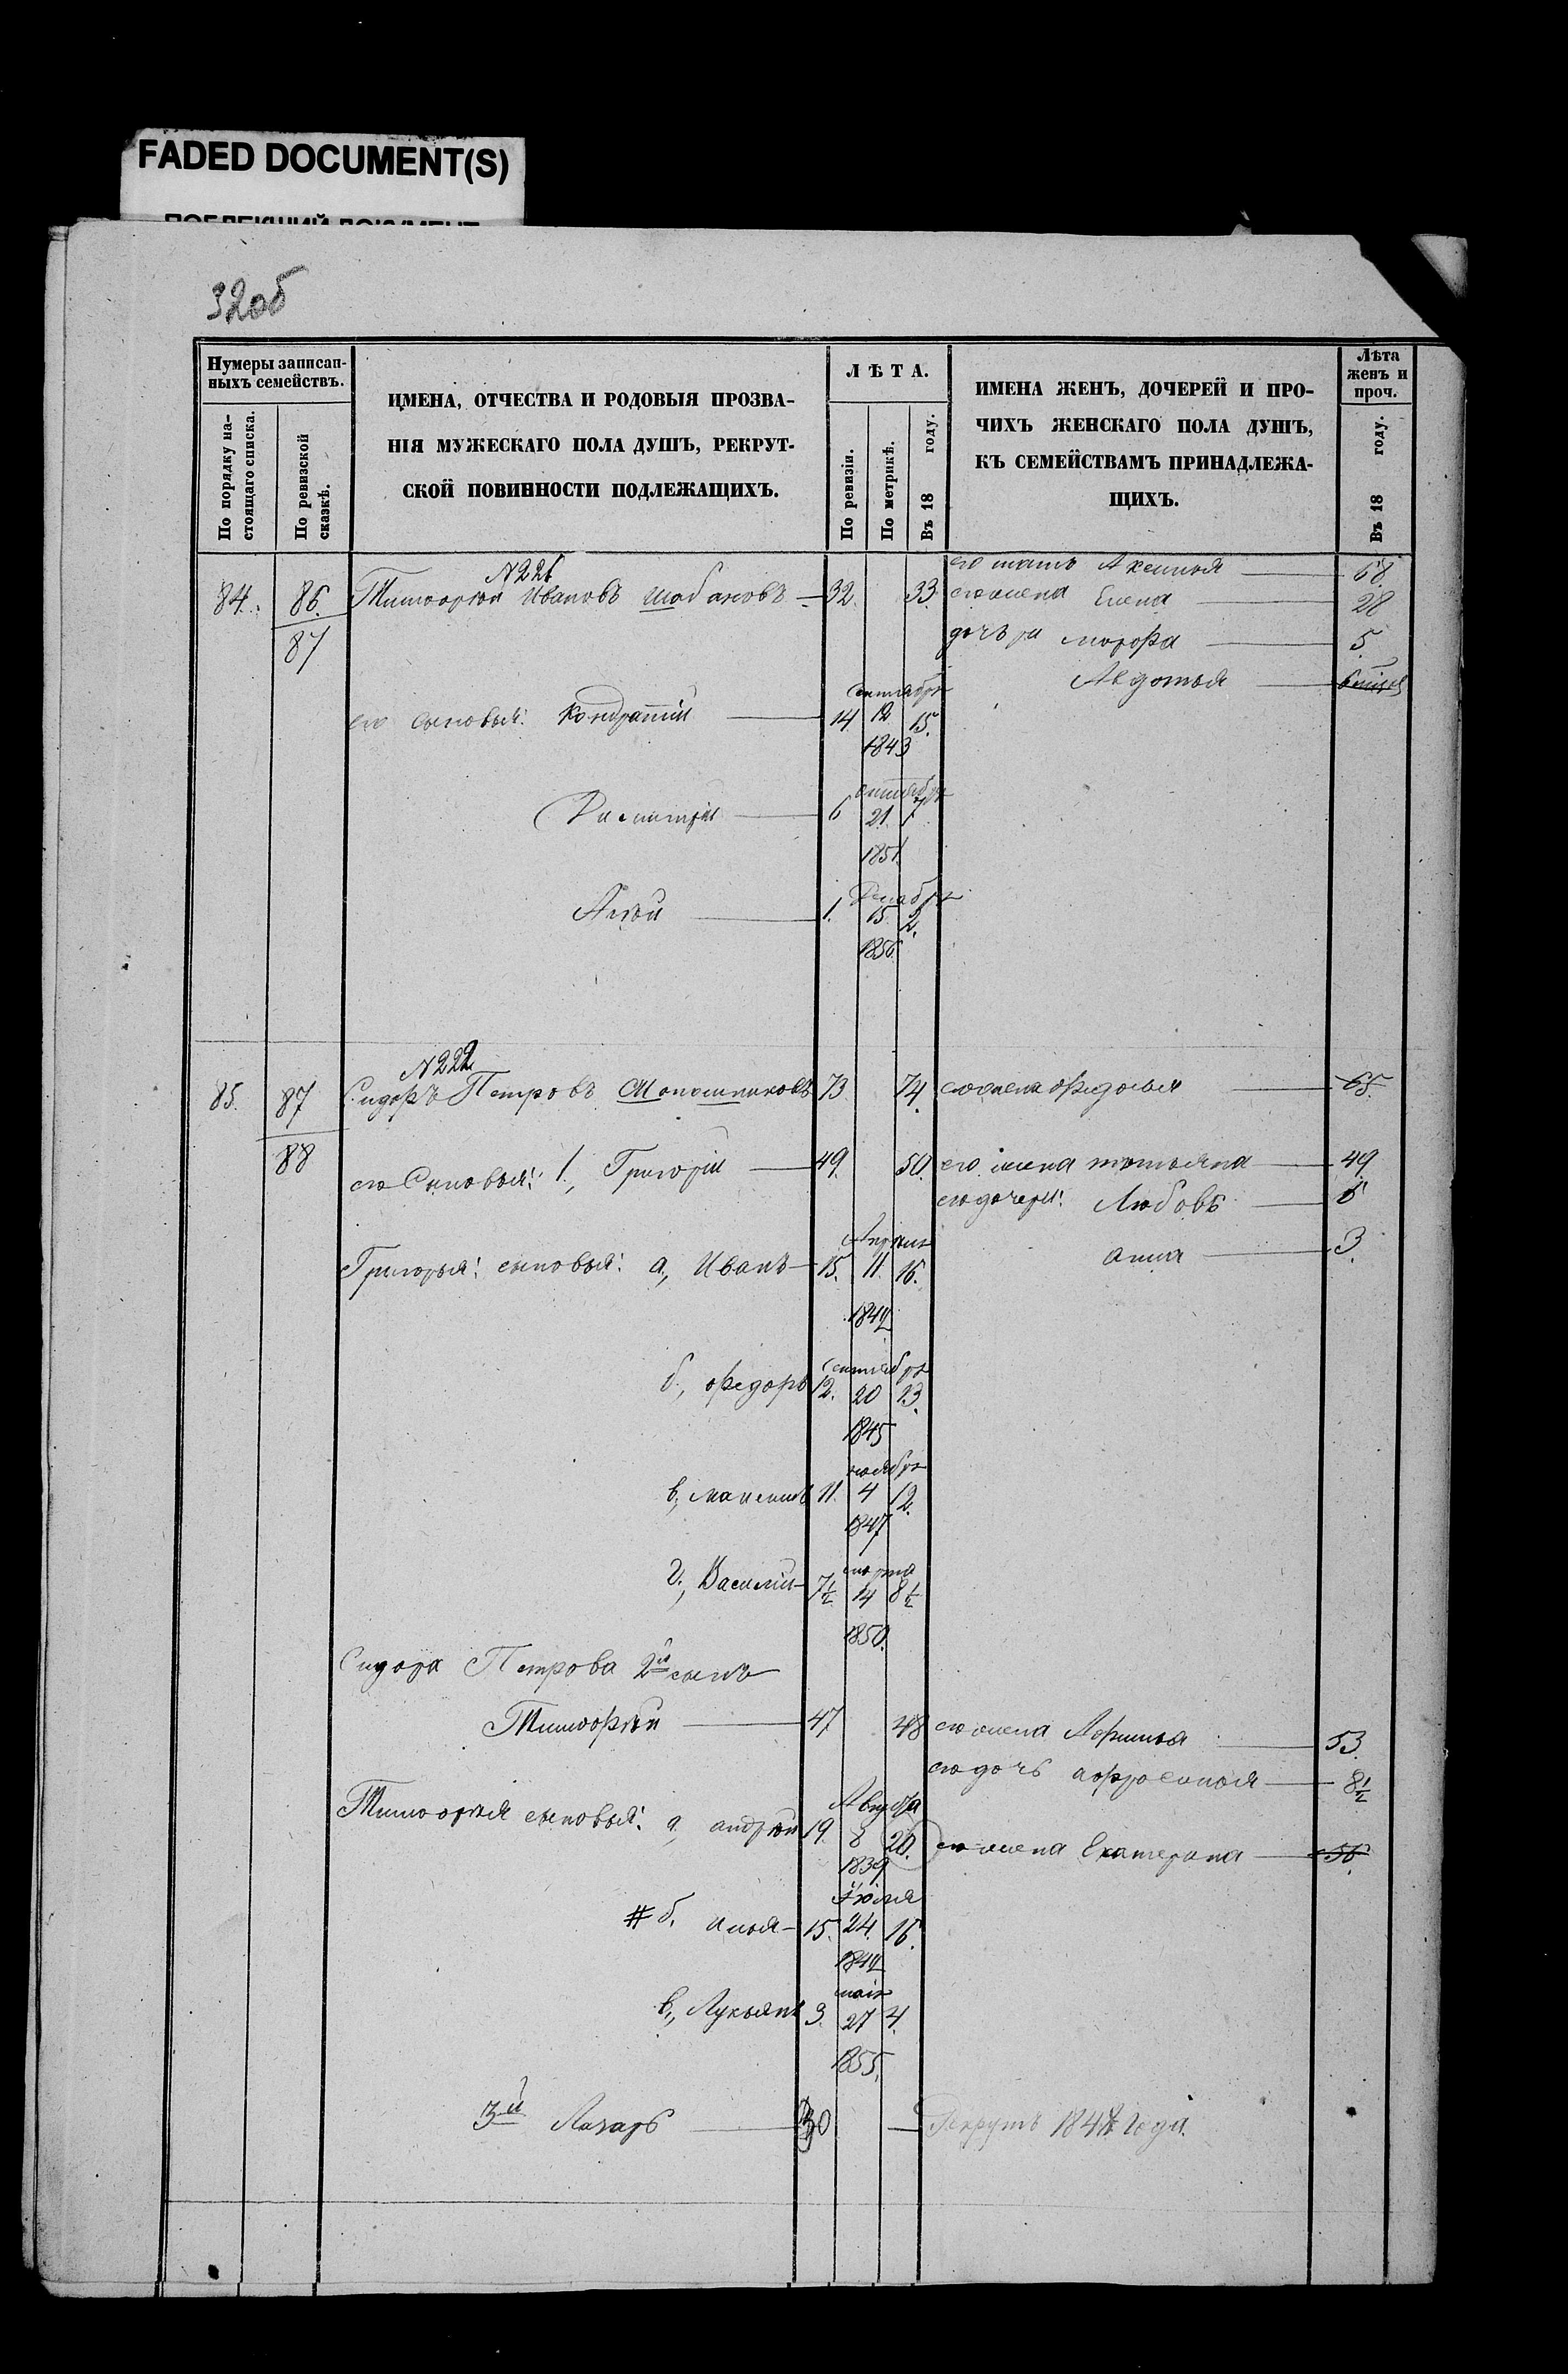 FADED DOCUMENT(S)
32об
Нумеры записан-
ныхъ семействъ.
По порядку на-
стоящаго списка.
По ревизской
сказкѣ.
ИМЕНА, ОТЧЕСТВА И РОДОВЫЯ ПРОЗВА-
НІЯ МУЖЕСКАГО ПОЛА ДУШЪ, РЕКРУТ-
СКОЙ ПОВИННОСТИ ПОДЛЕЖАЩИХЪ.
ЛѢТА.
По ревизіи.
По метрикѣ.
Въ 18 году.
ИМЕНА ЖЕНЪ, ДОЧЕРЕЙ И ПРО-
ЧИХЪ ЖЕНСКАГО ПОЛА ДУШЪ,
КЪ СЕМЕЙСТВАМЪ ПРИНАДЛЕЖА-
ЩИХЪ.
Лѣта
женъ и
проч.
Въ 18 году.
№ 221
его мать Аксинья 68.
84. 86. Тимофѣй Ивановъ Шабановъ 32. 33. его жена Елена 28
87 дочъри марфа 5.
Авдотья
Сентября
его сыновья: Кондратій 14 12 15.
1843
октября
Дмитрій 6 21. 7
1851.
Декабря
Агѣй 1. 15 2.
1856.
№ 222
85. 87 Сидоръ Петровъ 73 74. его жена федосья 65.
88 его Сыновья: 1, Григорій 49. 50. его жена татьяна 49.
его дочери: Любовь 6
анна 3.
Апреля
Григорья: сыновья: а, Иванъ 15. 11. 16.
1842
Сентября
б, федоръ 12. 20 13.
1845
ноября
в, максимъ 11. 4 12.
1847
марта
г, Василій 7½ 14 8½
1850.
Сидора Петрова 2й сынъ
Тимофѣй 47 48 его жена 53.
его дочь афросинья 8½
Августа
Тимофѣя сыновья: а, андрѣй 19. 8 20. его жена Екатерина
1839
Іюля
# б. илья 15. 24. 16.
1842
маія
в, Лукьянъ 3. 27 4.
1855.
3й Лазарь 30 Рекрутъ 184 Года.